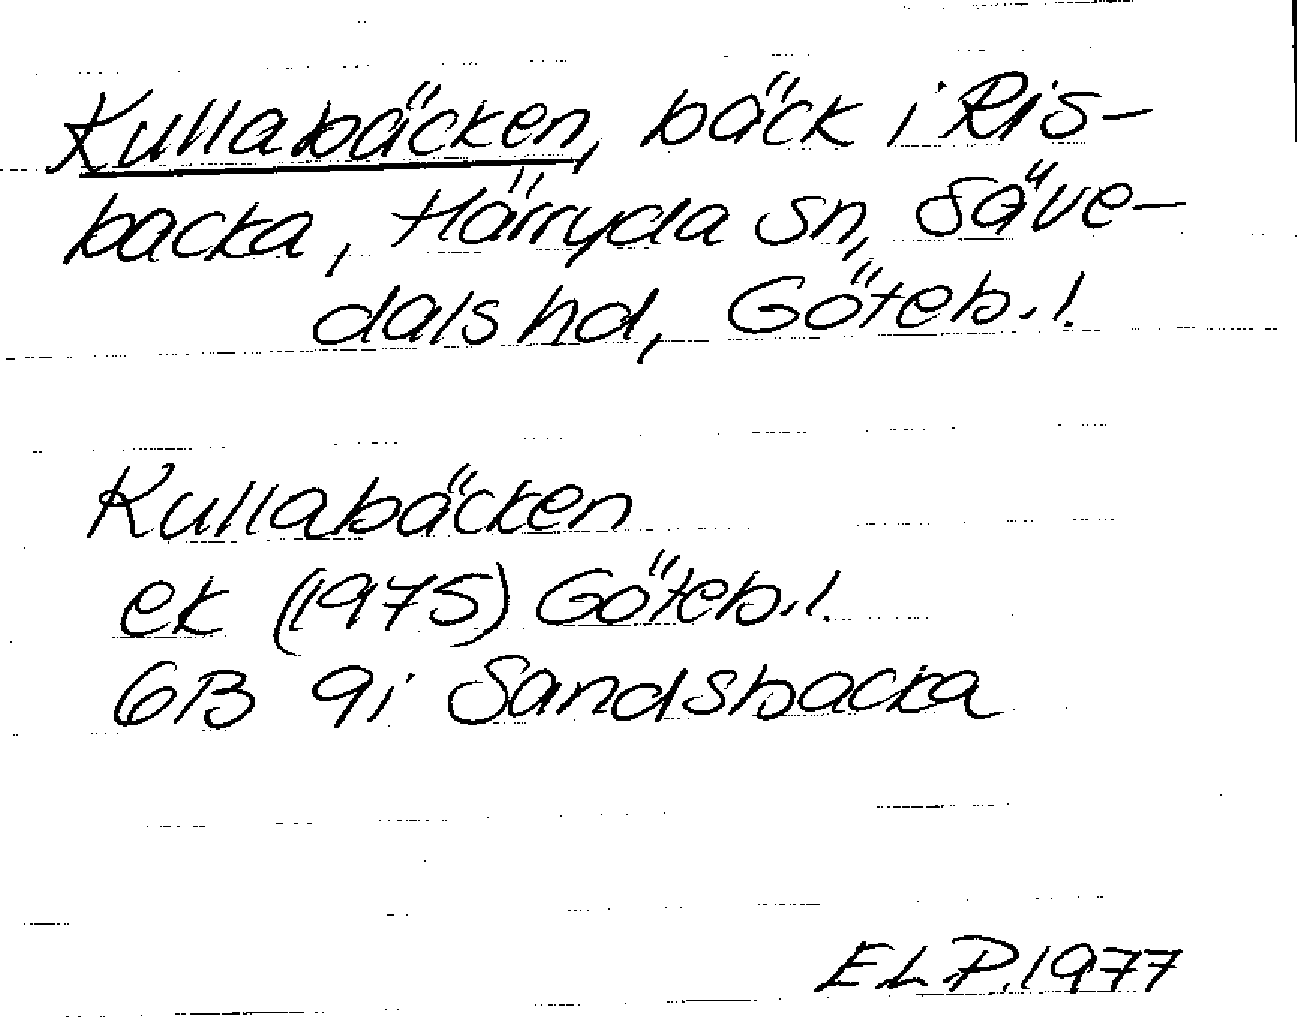 Kullabäcken, bäck i Ris-
backa, Härryda sn, Säve-
dals hd, Göteb.l.
Kullabäcken
ek (1975) Göteb.l.
6B 9i Sandsbacka
E L P. 1977